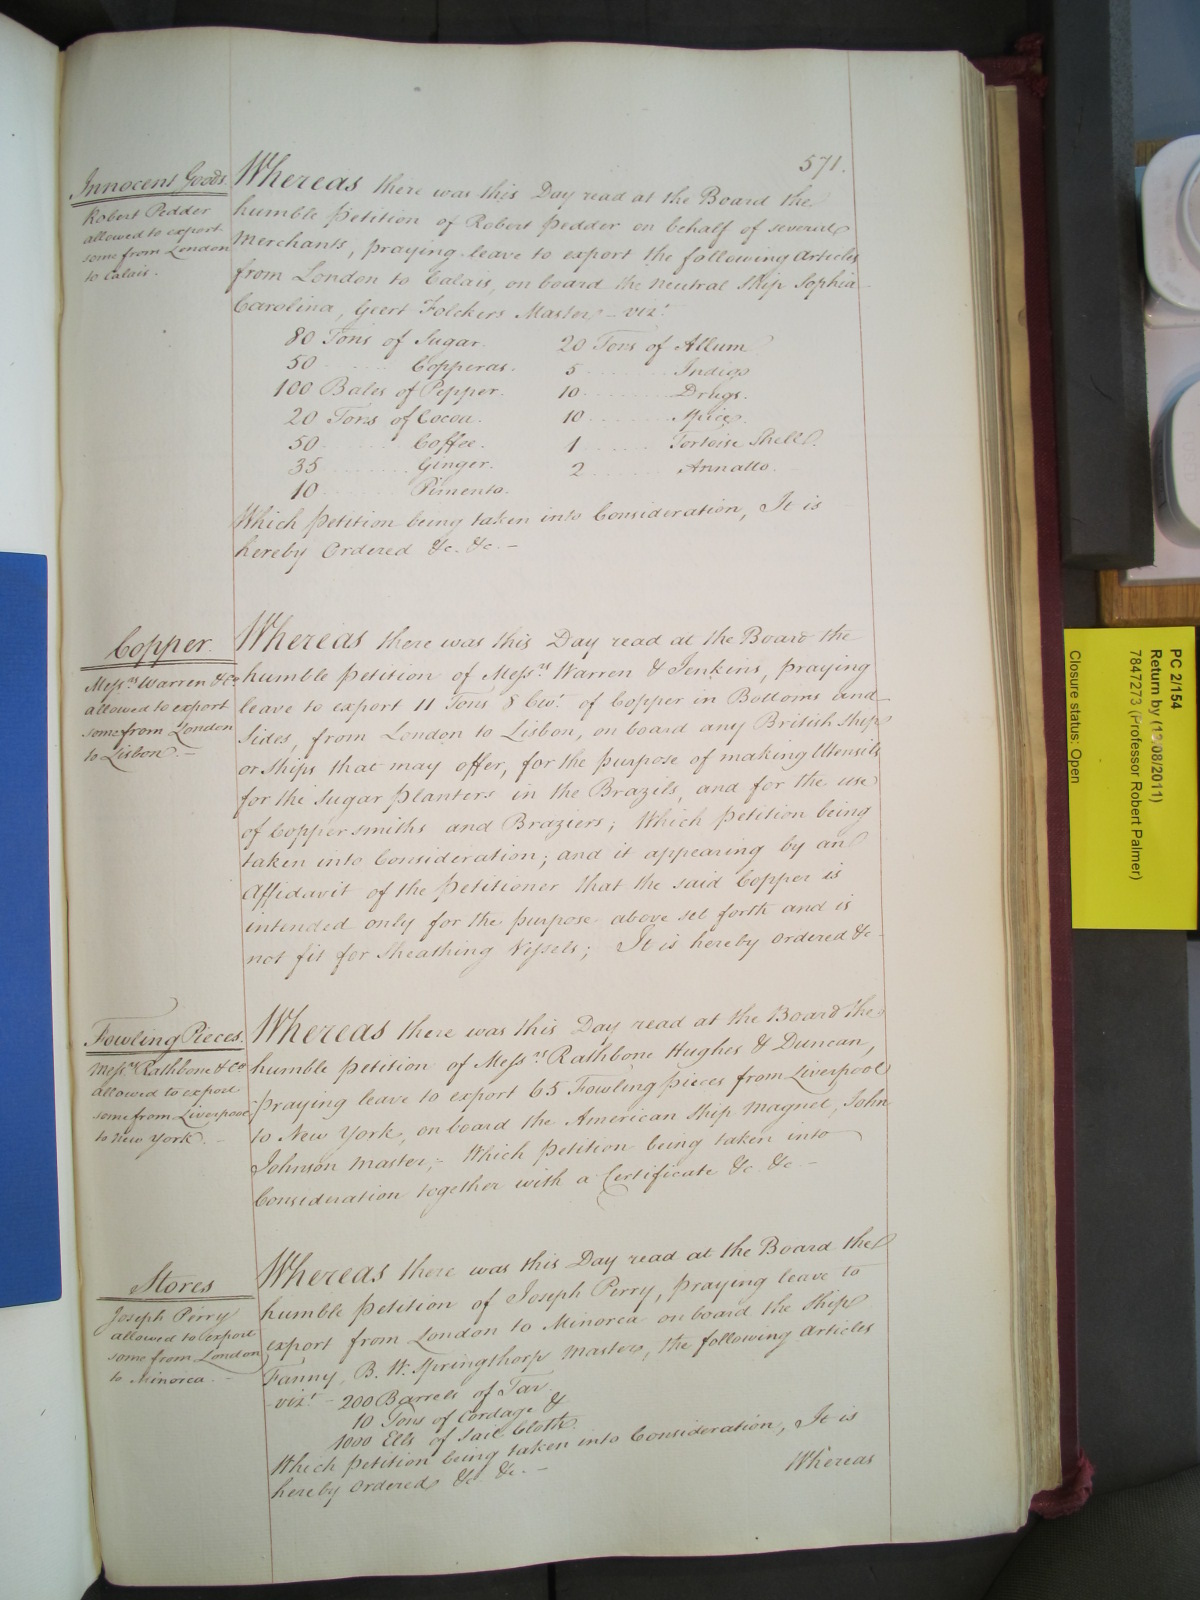 571.
Innocent Goods.
Robert Pedder
allowed to export
some from London
to Calais.
Whereas there was this Day read at the Board the
humble Petition of Robert Pedder on behalf of several
Merchants, praying leave to export the following Articles
from London to Calais, on board the neutral Ship Sophia
Carolina, Geert Folckers Master – vizt
80 Tons of Sugar.
50 ........ Copperas.
100 Bales of Pepper.
20 Tons of Cocoa.
50 ........ Coffee.
35 ........ Ginger.
10 ........ Pimento.
20 Tons of Allum
5 ........ Indigo
10 ........ Drugs.
10 ........ Spice.
1 ........ Tortoise Shell.
2 ........ Annatto.
Which Petition being taken into Consideration, It is
hereby Ordered &c. &c. –
Copper.
Messrs Warren & Co
allowed to export
some from London
to Lisbon –
Whereas there was this Day read at the Board the
humble Petition of Messrs Warren & Jenkins, praying
leave to export 11 Tons 8 Cwt of Copper in Bottoms and
Sides, from London to Lisbon, on board any British Ship
or Ships that may offer, for the purpose of making Utensils
for the Sugar Planters in the Brazils, and for the use
of Coppersmiths and Braziers; Which Petition being
taken into Consideration; and it appearing by an
Affidavit of the Petitioner that the said Copper is
intended only for the purpose above set forth and is
not fit for Sheathing Vessels; It is hereby Ordered &c –
Fowling Pieces.
Messrs Rathbone & Co
allowed to export
some from Liverpool
to New York. –
Whereas there was this Day read at the Board the
humble Petition of Messrs Rathbone Hughes & Duncan,
praying leave to export 65 Fowling pieces from Liverpool
to New York, on board the American Ship Magnet, John
Johnson Master; – Which Petition being taken into
Consideration together with a Certificate &c. &c. –
Stores
Joseph Perry
allowed to export
some from London
to Minorca. –
Whereas there was this Day read at the Board the
humble Petition of Joseph Perry, praying leave to
export from London to Minorca on board the Ship
Fanny, B. W. Springthorp Master, the following Articles
vizt – 200 Barrels of Tar
10 Tons of Cordage &
1000 Ells of Sail Cloth.
Which Petition being taken into Consideration, It is
hereby Ordered &c &c. –
Whereas
PC 2/154
Return by (12/08/2011)
7847273 (Professor Robert Palmer)
Closure status: Open